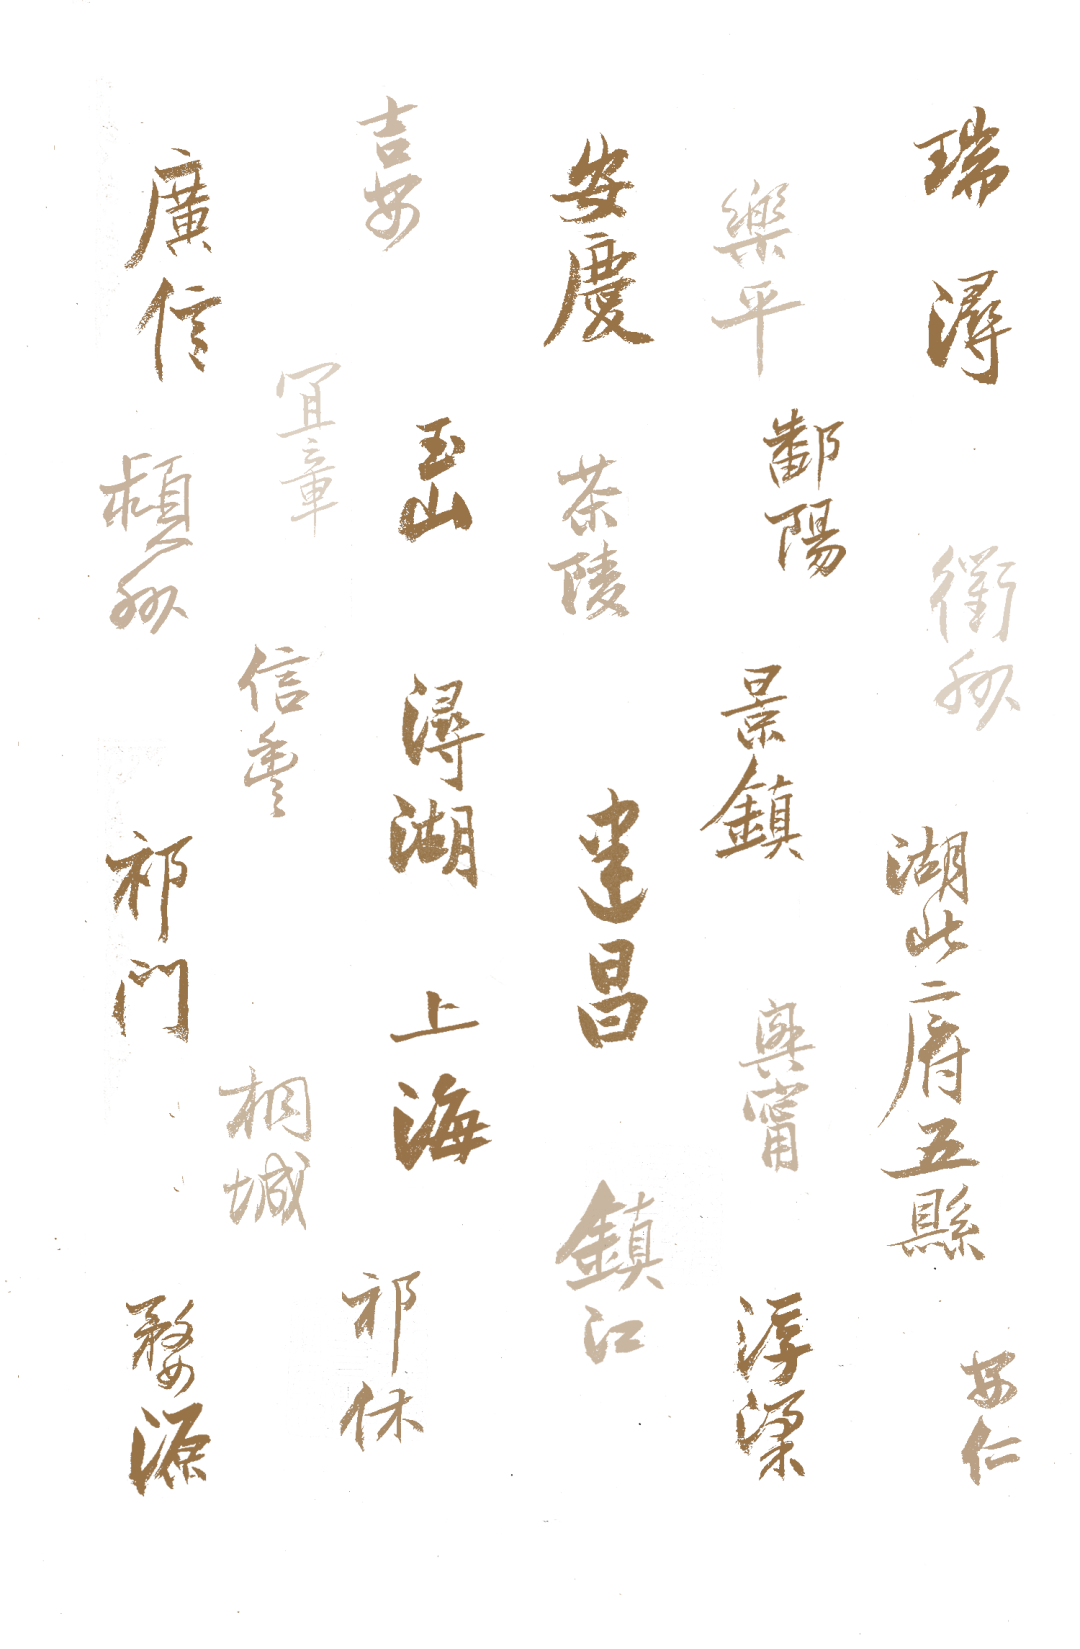 瑞
潯
衢州
湖北二府五縣
安仁
樂平
鄱陽
景鎮
興甯
浮梁
安慶
茶陵
建昌
鎮江
吉安
玉山
潯湖
上海
祁休
宜章
信豐
桐城
廣信
祁門
婺源